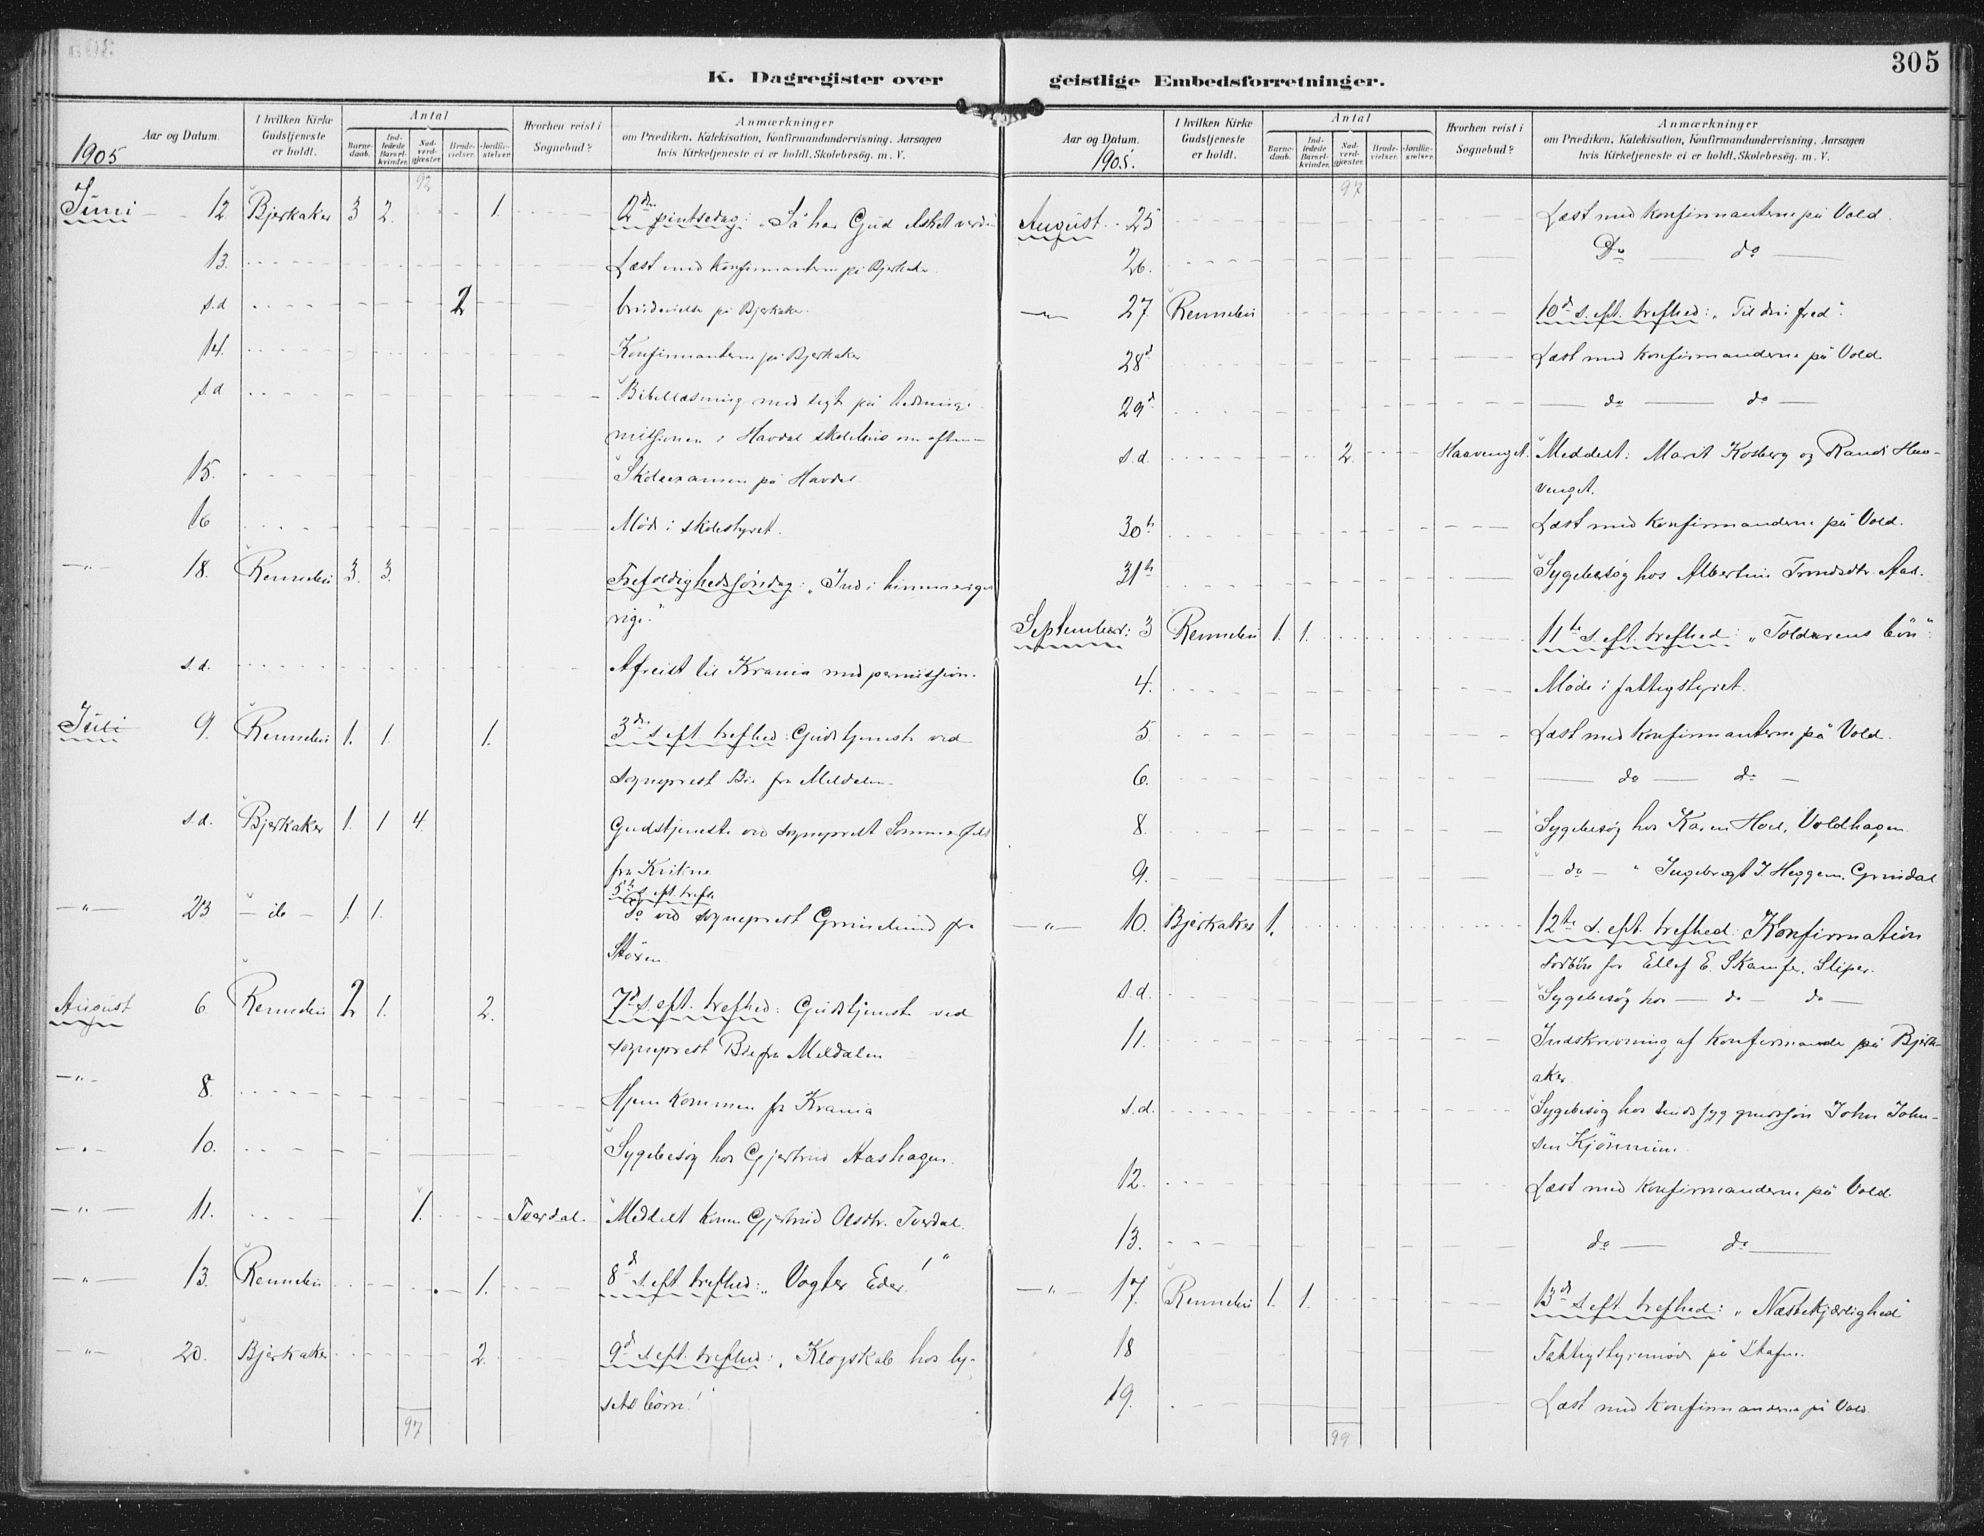 305
K. Dagregister over geistlige Embedsforretninger.
Aar og Datum.
1905
I hvilken Kirke Gudstjeneste er holdt.
Antal
Barnedaab.
Indledede Barselkvinder.
Nadverdgjester
Brudevielser.
Jordfæstelser.
Hvorhen reist i Sognebud?
Anmærkninger
om Prædiken, Katekisation, Konfirmandundervisning, Aarsagen
hvis Kirketjeneste ei er holdt, Skolebesøg, m. V.
92
Juni 12 Bjerkaker 3 2. 1. 2den pintsedag: Så har Gud elsket verd
13. Læst med konfirmanterne på Bjerkaker.
s.d 2 brudevielse på Bjerkaker.
14. Konfirmanterne på Bjerkaker
s.d Bibellæsning med
missionen i Havdal skolehus om aften
15. Skoleexamen på Havdal.
16 Møde i skolestyret.
18. Rennebu 3. 3. Trefoldighedssøndag: "Ind i himmeriges
rige."
s.d. Afreist til Krania med permission.
Juli 9. Rennebu 1. 1. 1. 3die s. eft. trefhed: Gudstjeneste ved
sogneprest Bie fra Meldalen.
s.d. Bjerkaker 1. 1 4. Gudstjeneste ved sogneprest
fra
5te s. eft. trefh.
23 - do - 1. 1. Do ved sogneprest fra
Støren.
August 6. Rennebu 2 1. 2. 7d s. eft. trefhed: Gudstjeneste ved
sogneprest Bie fra Meldalen
8. Hjemkommen fr Krania
10. Sygebesøg hos Gjertrud Aashagen.
11. 1. Tverdal. Meddelt kone Gjertrud Olsdtr. Tverdal.
13. Rennebu 1. 8d s. eft. trefhed: "Vogter Eder!"
20. Bjerkaker 2. 9d s. eft. trefhed: "Klogskab hos ly-
sets børn!"
97
Aar og Datum.
1905.
I hvilken Kirke Gudstjeneste er holdt.
Antal
Barnedaab.
Indledede Barselkvinder.
Nadverdgjester
Brudevielser.
Jordfæstelser.
Hvorhen reist i Sognebud?
Anmærkninger
om Prædiken, Katekisation, Konfirmandundervisning, Aarsagen
hvis Kirketjeneste ei er holdt, Skolebesøg, m. V.
97
August 25 Læst med konfirmanterne på Vold.
26. Do do
27 Rennebu 10d s. eft. trefhed: "Til din fred".
28d Læst med konfirmanderne på Vold
29d do do
s.d. 2 Haavenget. Meddelt: Marit Kosberg og Randi Haa-
venget.
30te Læst med konfirmanderne på Vold.
31te Sygebesøg hos Albertine Trondsdtr. Aas.
September: 3 Rennebu 1. 1. 11te s. eft. trefhed: "Tolderens bøn":
4. Møde i fattigstyret.
5. Læst med konfirmanterne på Vold.
6. do do
8. Sygebesøg hos Karen Hoel, Voldhagen.
9. do " Ingebrigt J. Heggem, Grindal
10. Bjerkaker 1. 12te s. eft. trefhed: Konfirmation
Forbøn for Ellef E. Skamfer, Stiper.
s.d. Sygebesøg hos do do
11. Indskrivning af konfirmander på Bjerk-
aker.
s.d. Sygebesøg hos John John-
sen
12. Læst med konfirmanderne på Vold.
13. do do
17. Rennebu 1. 1. 13d s. eft. trefhed: "Næstekjærlighed"
18 Fattigstyremøde på Stafne.
19. Læst med konfirmanderne på Vold.
99